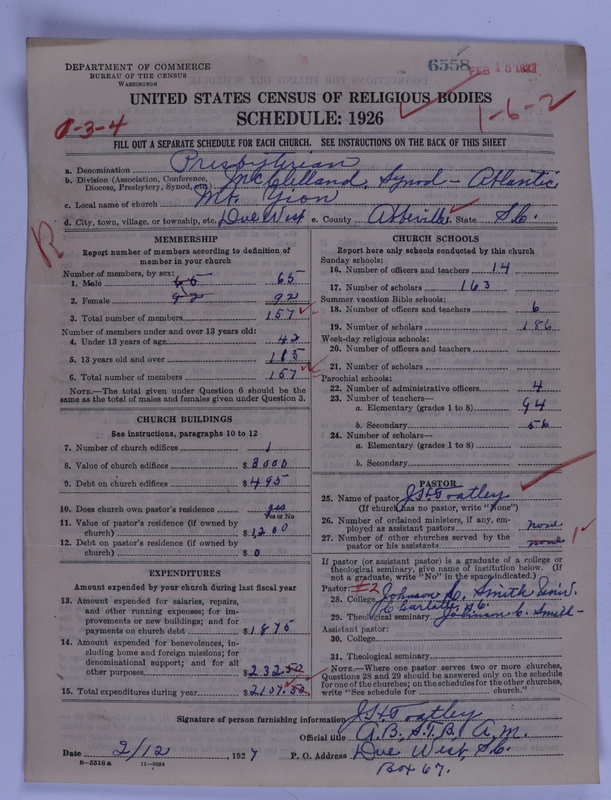 DEPARTMENT OF COMMERCE
BUREAU OF THE CENSUS
WASHINGTON
6558 FEB 15 1927
UNITED STATES CENSUS OF RELIGIOUS BODIES
SCHEDULE: 1926
1-6-2
0-3-4
FILL OUT A SEPARATE SCHEDULE FOR EACH CHURCH. SEE INSTRUCTIONS ON THE BACK OF THIS SHEET
a. Denomination Presbyterian
b. Division (Association, Conference, Diocese, Presbytery, Synod, etc.) McClelland, Synod - Atlantic
c. Local name of church Mt. Zion
d. City, town, village, or township, etc. Due West e. County Abbeville f. State S.C.
R
MEMBERSHIP
Report number of members according to definition of member in your church
Number of members, by sex:
1. Male 65 65
2. Female 92 92
3. Total number of members 157
Number of members under and over 13 years old:
4. Under 13 years of age 42
5. 13 years old and over 115
6. Total number of members 157
NOTE.—The total given under Question 6 should be the same as the total of males and females given under Question 3.
CHURCH BUILDINGS
See instructions, paragraphs 10 to 12
7. Number of church edifices 1
8. Value of church edifices $ 8000
9. Debt on church edifices $ 495
10. Does church own pastor's residence yes
Yes or No
11. Value of pastor's residence (if owned by church) $ 1200
12. Debt on pastor's residence (if owned by church) $ 0
EXPENDITURES
Amount expended by church during last fiscal year
13. Amount expended for salaries, repairs, and other running expenses; for improvements or new buildings; and for payments on church debt $ 1875
14. Amount expended for benevolences, including home and foreign missions; for denominational support; and for all other purposes $ 232.50
15. Total expenditures during year $ 2107.50
CHURCH SCHOOLS
Report here only schools conducted by this church
Sunday schools:
16. Number of officers and teachers 14
17. Number of scholars 163
Summer vacation Bible schools:
18. Number of officers and teachers 6
19. Number of scholars 186
Week-day religious schools:
20. Number of officers and teachers
21. Number of scholars
Parochial schools:
22. Number of administrative officers 4
23. Number of teachers—
a. Elementary (grades 1 to 8) 94
b. Secondary 56
24. Number of scholars—
a. Elementary (grades 1 to 8)
b. Secondary
PASTOR
25. Name of pastor J.H. Toatley
(If church has no pastor, write "None")
26. Number of ordained ministers, if any, employed as assistant pastors none
27. Number of other churches served by the pastor or his assistants none 1
If pastor (or assistant pastor) is a graduate of a college or theological seminary, give name of institution below. (If not a graduate, write "No" in the space indicated.)
Pastor: #2
28. College Johnson C. Smith Univ.
29. Theological seminary Johnson C. Smith -
Assistant pastor:
30. College
31. Theological seminary
NOTE.—Where one pastor serves two or more churches, Questions 28 and 29 should be answered only on the schedule for one of the churches; on the schedules for the other churches, write "See schedule for church."
Signature of person furnishing information J.H. Toatley
Official title A.B., S.T.B., A.M.
Date 2/12, 1927 P. O. Address Due West, S.C.
8—5518a 11—9034
Box 67.